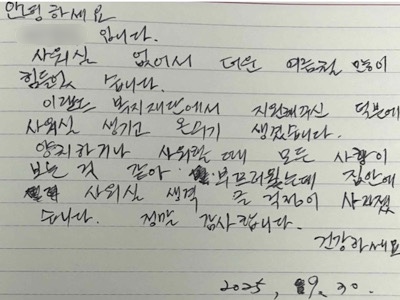 안녕하세요
입니다.
샤워실 없어서 더운 여름철 많이
힘들었 습니다.
이랜드 복지재단에서 지원해주신 덕분에
샤워실 생기고 온수기 생겼습니다.
양치하거나 샤워할 때 모든 사람이
보는 것 같아 부끄러웠는데 집안에
샤위실 생겨 큰 걱정이 사라졌
습니다. 정말 감사합니다.
건강하세요
2025, 9. 30.